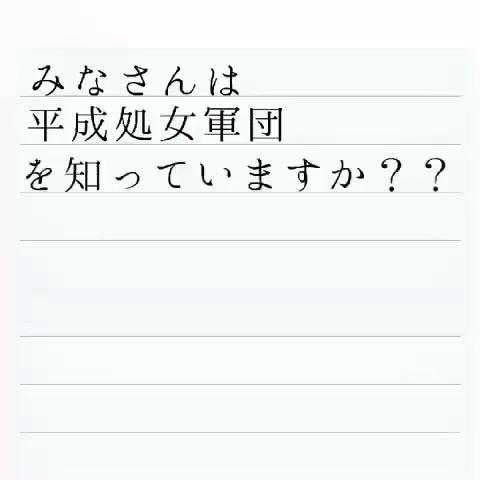 みなさんは
平成処女軍団
を知っていますか？？